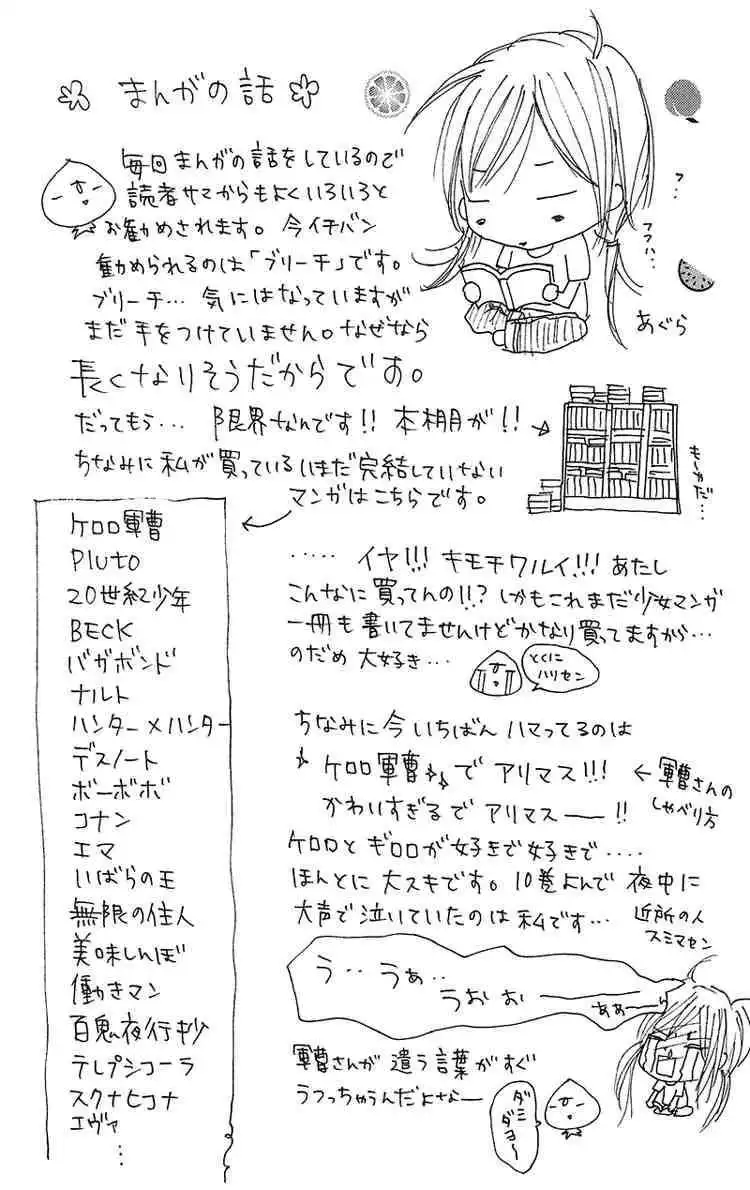 まんがの話
毎回まんがの話をしているので
読者サマからもよくいろいろと
お勧めされます。今イチバン
勧められるのは「ブリーチ」です。
ブリーチ… 気にはなっていますが
まだ手をつけていません。なぜなら
長くなりそうだからです。
だってもう… 限界なんです!! 本棚が!!
ちなみに私が買っているいまだ完結していない
マンガはこちらです。
フ‥
フフハ‥
あぐら
もーかだ…
ケロロ軍曹
Pluto
20世紀少年
BECK
バガボンド
ナルト
ハンター×ハンター
デスノート
ボーボボ
コナン
エマ
いばらの王
無限の住人
美味しんぼ
働きマン
百鬼夜行抄
テレプシコーラ
スクナヒコナ
エヴァ
⋮
‥‥‥ イヤ!!! キモチワルイ!!! あたし
こんなに買ってんの!!? しかもこれまだ少女マンガ
一冊も書いてませんけどかなり買ってますから…
のだめ 大好き…
とくに
ハリセン
ちなみに今いちばんハマってるのは
ケロロ軍曹でアリマス!!!
←軍曹さんの
しゃべり方
かわいすぎるでアリマス――!!
ケロロとギロロが好きで好きで‥‥
ほんとに大スキです。10巻よんで夜中に
大声で泣いていたのは私です…
近所の人
スミマセン
う‥うぁ‥
うおお――
ああ〜
軍曹さんが遣う言葉がすぐ
うつっちゃうんだよなー
ダミ
ダヨ〜